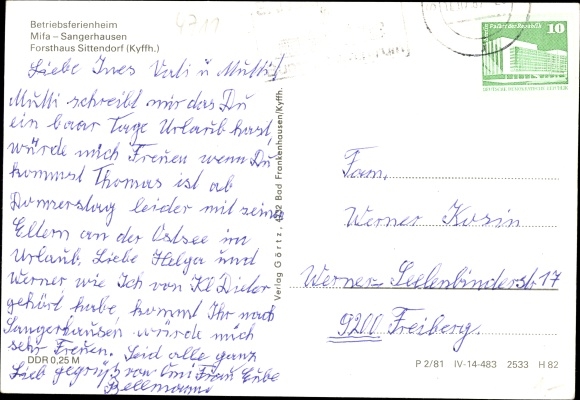 4211
Betriebsferienheim
Mifa – Sangerhausen
Forsthaus Sittendorf (Kyffh.)
Liebe Ines Vati u Mutti!
Mutti schreibt mir das Du
ein baar Tage Urlaub hast
würde mich Freuen wenn Du
kommst Thomas ist ab
Donnerstag leider mit seinen
Eltern an der Ostsee im
Urlaub. Liebe Helga und
Werner wie Ich von Kl Dieter
gehört habe, kommt Ihr nach
Sangerhausen würde mich
sehr Freuen. Seid alle ganz
Lieb gegrüßt von Omi Frau
Bellmann
DDR 0,25 M
Verlag Görtz, 4732 Bad Frankenhausen/Kyffh.
Palast der Republik
10
DEUTSCHE DEMOKRATISCHE REPUBLIK
Fam.
Werner Kosin
Werner-Seelenbinderstr 17
9200 Freiberg.
P 2/81 IV-14-483 2533 H 82